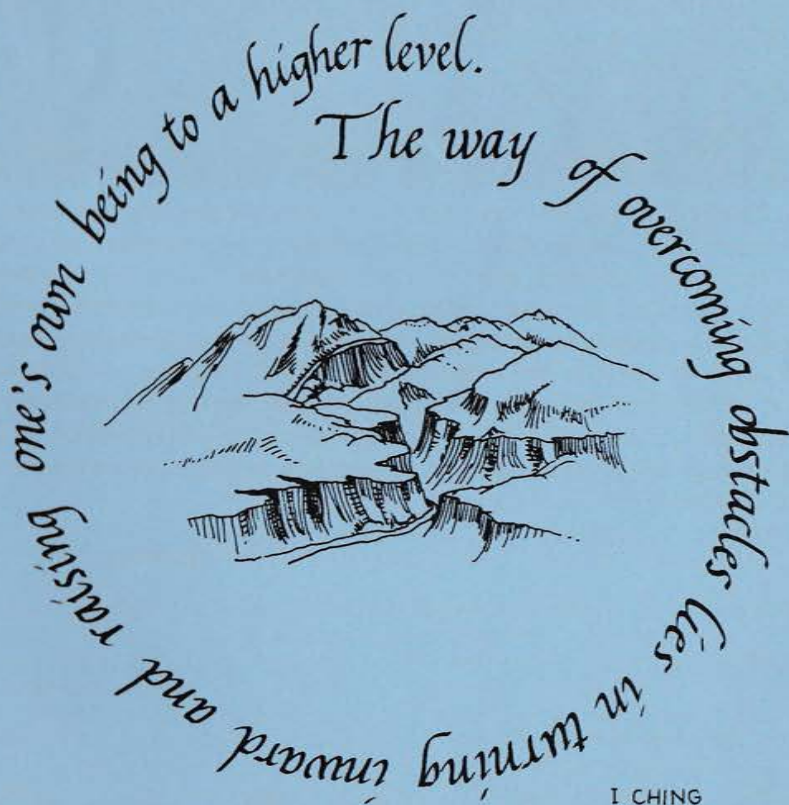 The way of overcoming obstacles lies in turning inward and raising one's own being to a higher level.
I CHING